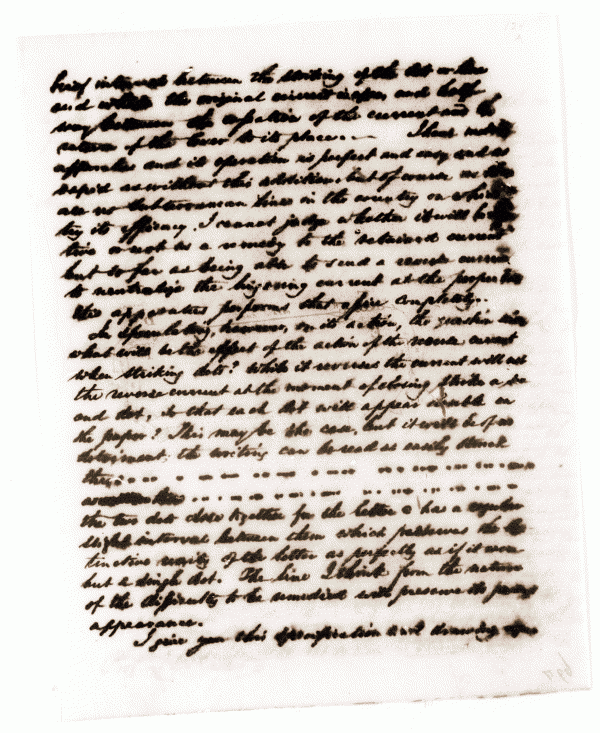 brief interval between the striking of the dot or line
and while the original circuit is open, and half
way between the cessation of the current and the
return of the lever to its place. — I have
apparatus and its operation is perfect and easy and as
rapid as without this addition, but of course we
are no subterranean lines in the country on which
try its efficacy. I cannot judge whether it will be
tive or not as a remedy to the "retained current"
but so far as being able to send a reverse current
to neutralize the lingering current at the proper time
the apparatus performs that office completely.
In speculating however, on its action, the question
what will be the effect of the action of the reverse current
when striking dots? While it reverses the current will not
the reverse current at the moment of closing strike a
and dot, so that each dot will appear double on
the paper? This may be the case, but it will be of no
detriment, the writing can be read as easily
thus
the two dots close together for the letter e has a
slight interval between them which preserves the
tinctive unity of the letter as perfectly as if it were
but a single dot. The line I think from the nature
of the difficulty to be remedied will preserve its
appearance.
I give you this specification and drawing